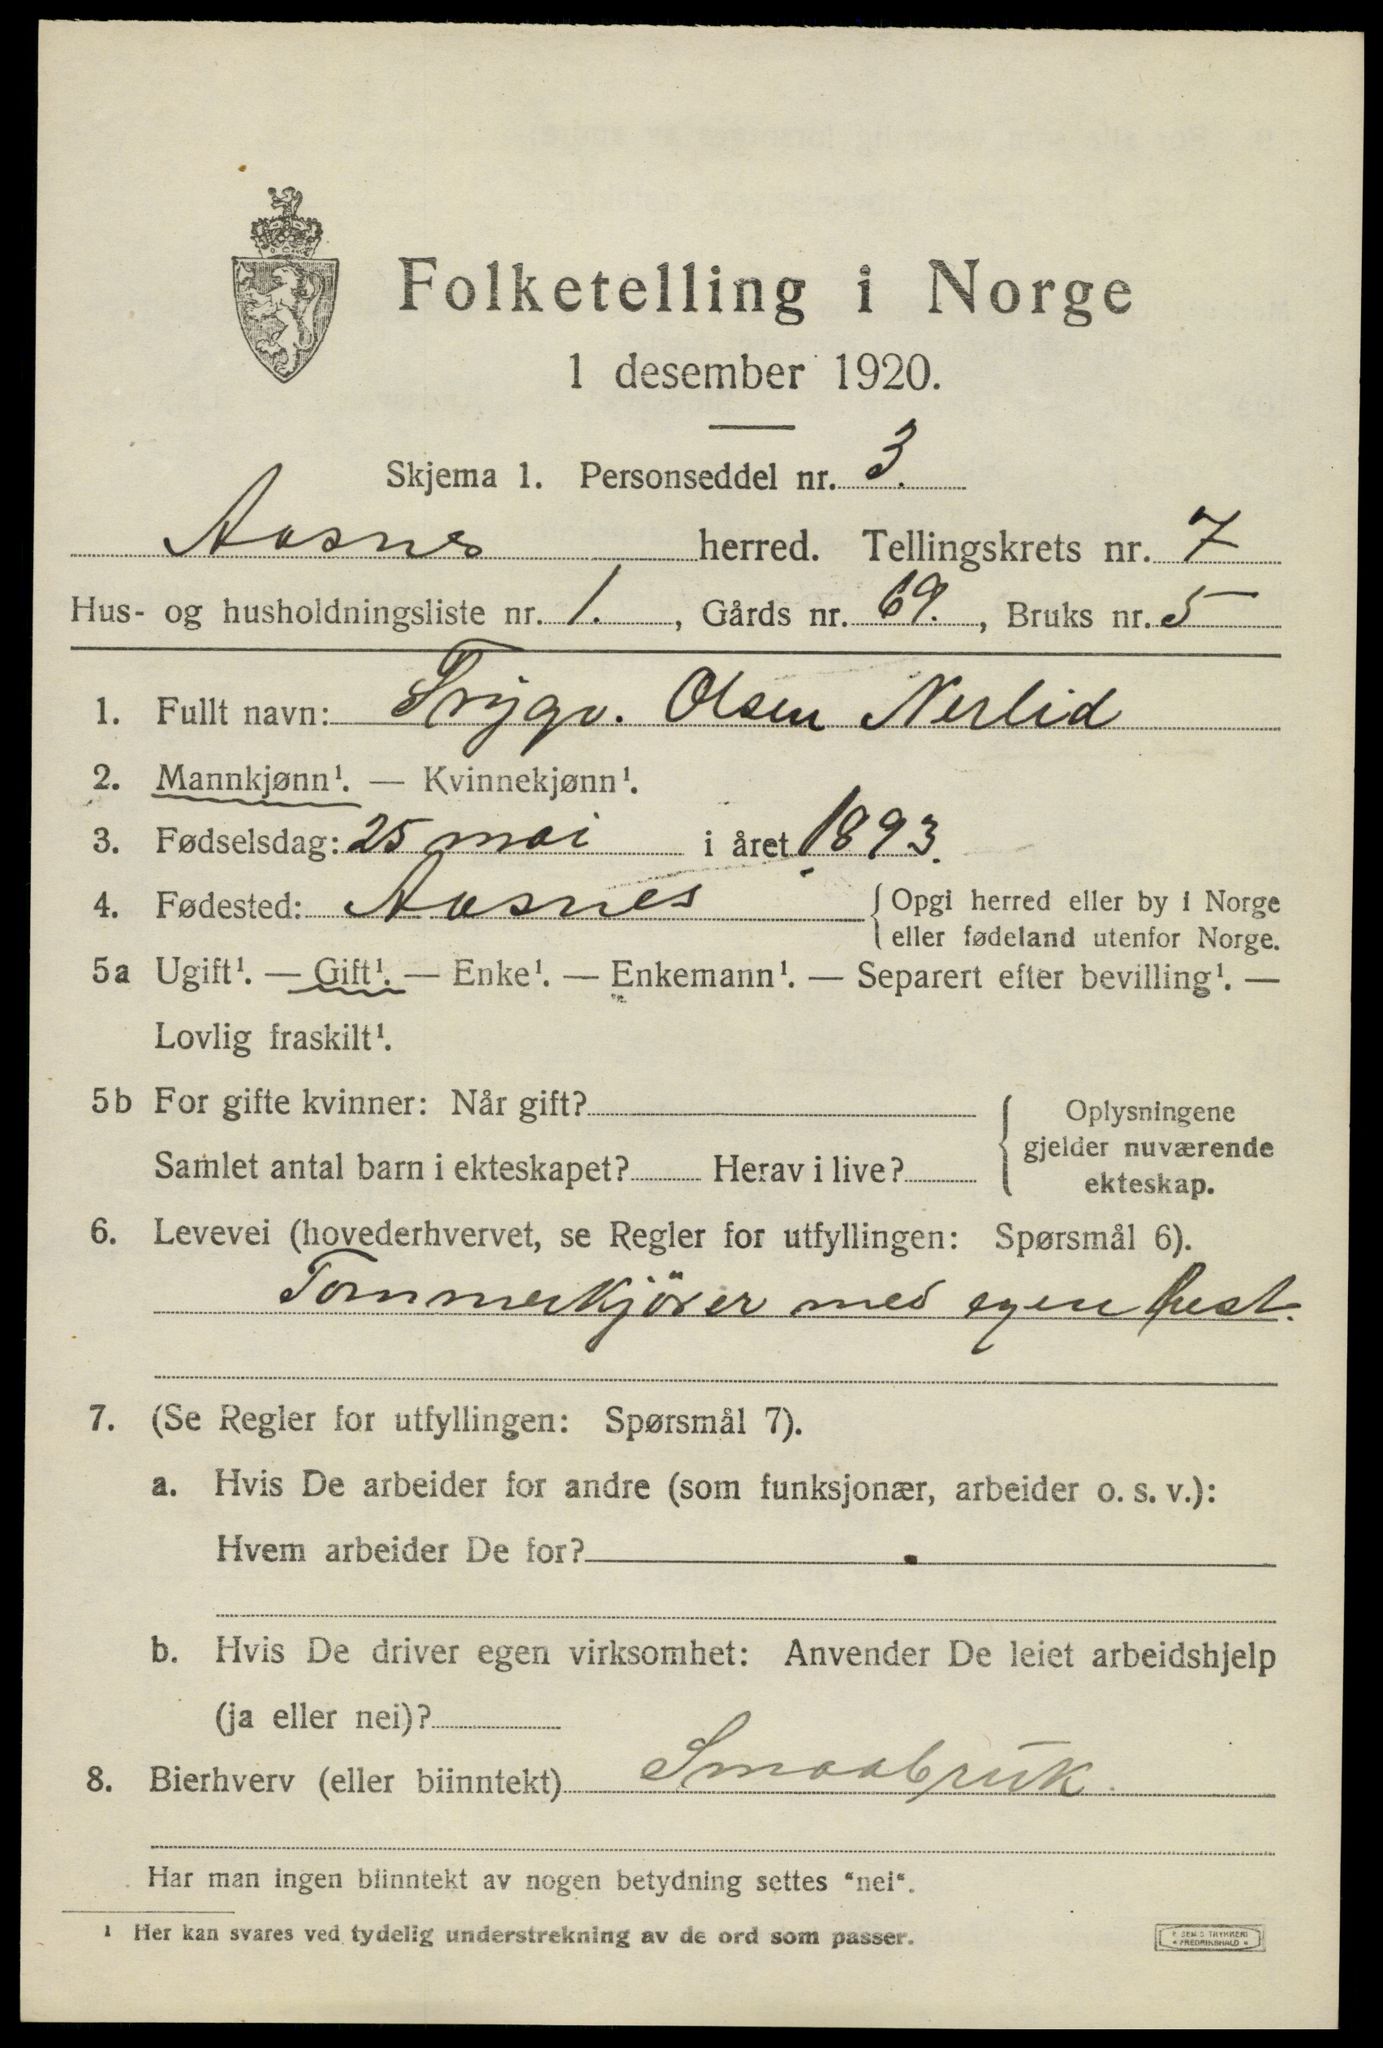 Folketelling i Norge
1 desember 1920.
Skjema 1. Personseddel nr. 3.
Aasnes herred. Tellingskrets nr. 7
Hus- og husholdningsliste nr. 1., Gårds nr. 69., Bruks nr. 5
1. Fullt navn: Trygv. Olsen Nerlid
2. Mannkjønn¹. — Kvinnekjønn¹.
3. Fødselsdag: 25 mai i året 1893.
4. Fødested: Aasnes { Opgi herred eller by i Norge
eller fødeland utenfor Norge.
5a Ugift¹. — Gift¹. — Enke¹. — Enkemann¹. — Separert efter bevilling¹. —
Lovlig fraskilt¹.
5b For gifte kvinner: Når gift? { Oplysningene
gjelder nuværende
Samlet antal barn i ekteskapet? Herav i live?
ekteskap.
6. Levevei (hovederhvervet, se Regler for utfyllingen: Spørsmål 6).
Tommerkjörer med egen hest.
7. (Se Regler for utfyllingen: Spørsmål 7).
a. Hvis De arbeider for andre (som funksjonær, arbeider o. s. v.):
Hvem arbeider De for?
b. Hvis De driver egen virksomhet: Anvender De leiet arbeidshjelp
(ja eller nei)?
8. Bierhverv (eller biinntekt) Smaabruk.
Har man ingen biinntekt av nogen betydning settes "nei".
¹ Her kan svares ved tydelig understrekning av de ord som passer.
TRYKKERI
FREDRIKSHALD